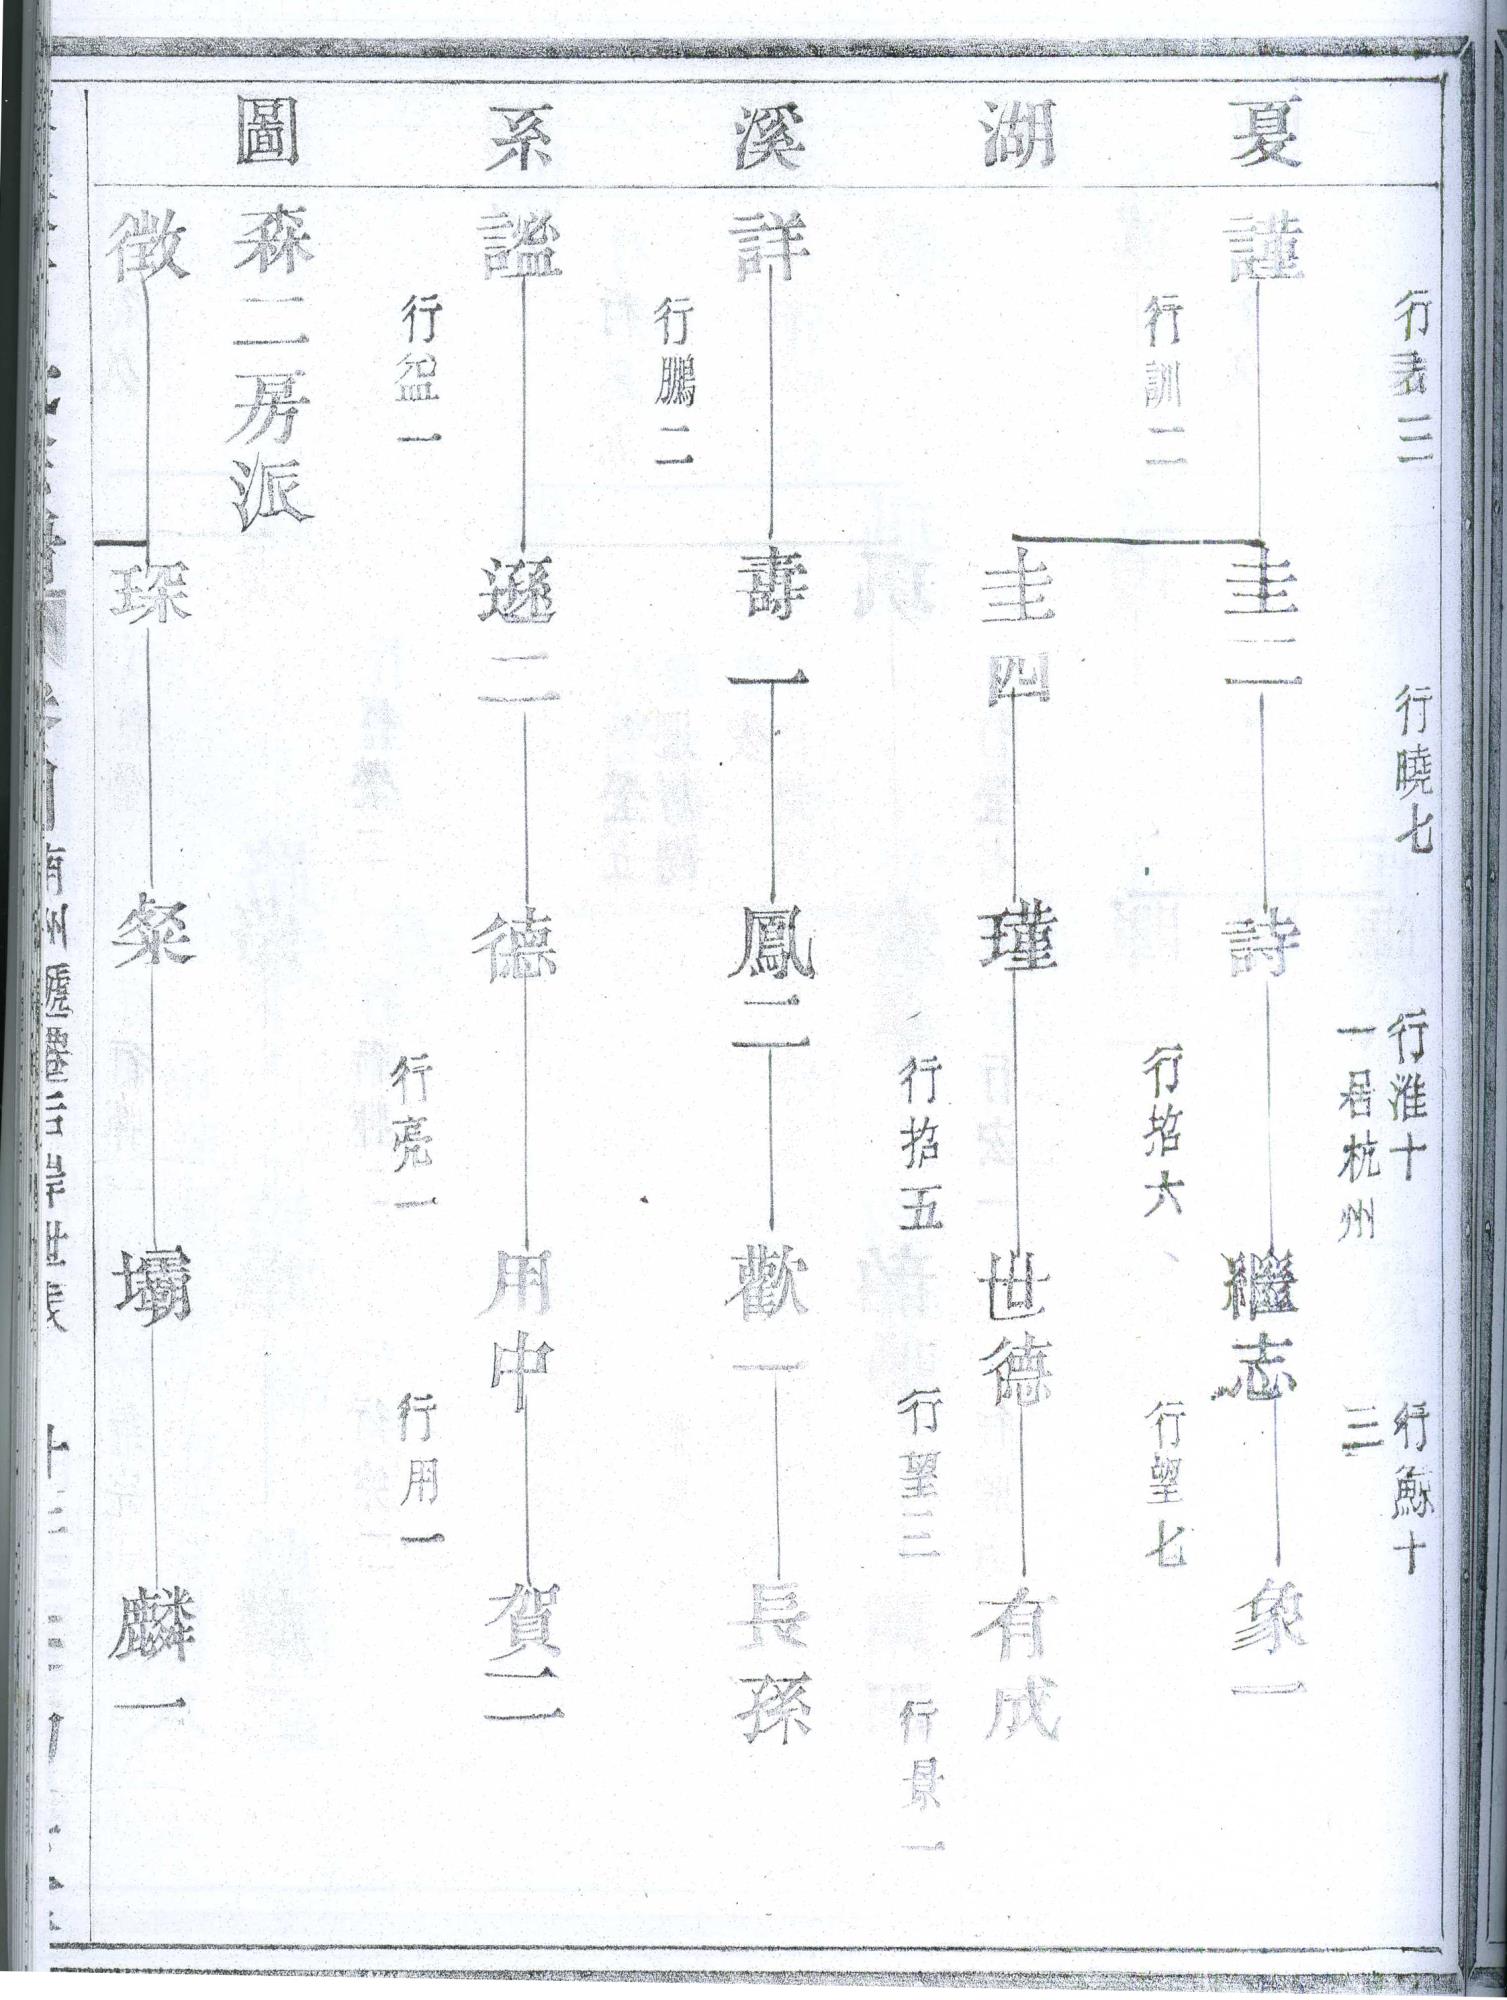 夏湖溪系圖
行表三
行曉七
行淮十
一居杭州
行穌十
三
謹
圭二
詩
繼志
象一
行訓二
行招六
行望七
圭四
瑾
世德
有成
行招五
行望三
行景一
詳
壽一
鳳二
歡一
長孫
行鵬二
謐
遜二
德
用中
賀二
行盆一
行亮一
行用一
森二房派
徵
琛
粲
壩
麟一